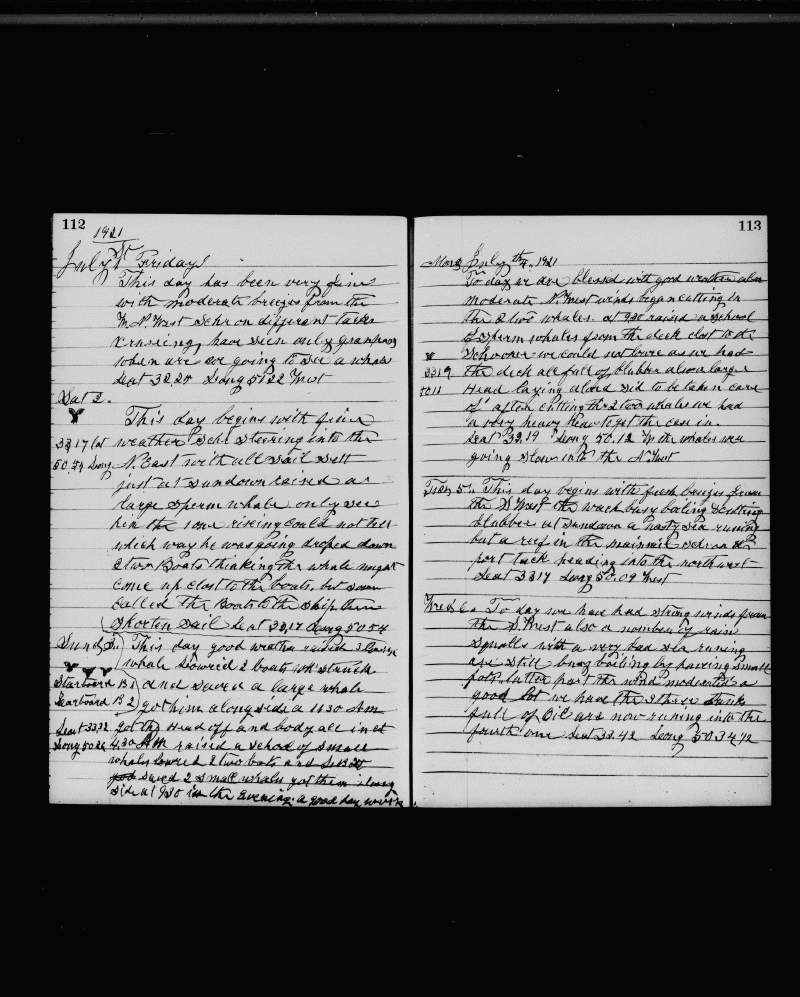 112
1921
July 1st Friday
This day has been very fine
with moderate breezes from the
W.N. West Schr on different tacks
Cruising, have seen only grampus
when are we going to see a whale
Leat 32,20 Long 51 22 West
Sat 2.
This day begins with fine
33,17 lat weather Schr Steering into the
50.54 Long N. East with all Sail Sett
just at Sundown raised a
large Sperm whale only see
him the 1 one rising could not tell
which way he was going droped down
2 two Boats thinking the whale might
come up clost to the boats, but soon
called the Boats to the Ship then
Shorten Sail Leat 33,17 Long 50 54
Sund 3 This day good weather raised
whale Lowered 2 boats struck
Starboard B 1 and Saved a large whale
Larboard B 2 got him alongside a 11.30 AM
Leat 33,22 got the Head off and body all in at
Long 50 4.30 raised a School of Small
whales lowred 2 two bots and
Saved 2 small whales got them along
side at 9.30 in the Evening. a good day
113
Mond July 4th, 1921
To day we are blessed with good weather also
moderate N. West winds began cutting in
the 2 two whales. a 9,30 raised a School
of Sperm whales from the deck clost to the
Schooner we could not lowre as we had
3319 the deck all full of blubber also a large
5011 Head laying a long Sid to be taken care
of after cutting the 2 two whales we had
a very heavy to get the case in.
Leat 33.19 Long 50.12 W the whales was
going Slow into the N. West
Tues 5. This day begins with fresh breezes from
the S West the wach busy boling
blubber at Sundown a nasty Sea runing
put a reef in the mainsail Schr on the
port tack heading into the north west
Leat 3317 Long 50.09 West
Wred 6. To day we have had strong winds from
the S. West also a nomber of rain
Squalls with a very bad Sea runing
are Still busy boiling by having Small
pots. latter part the wind moderated a
good lot we have the 3 three tanks
full of Oil are now runing into the
fourth one Leat 33.42 Long